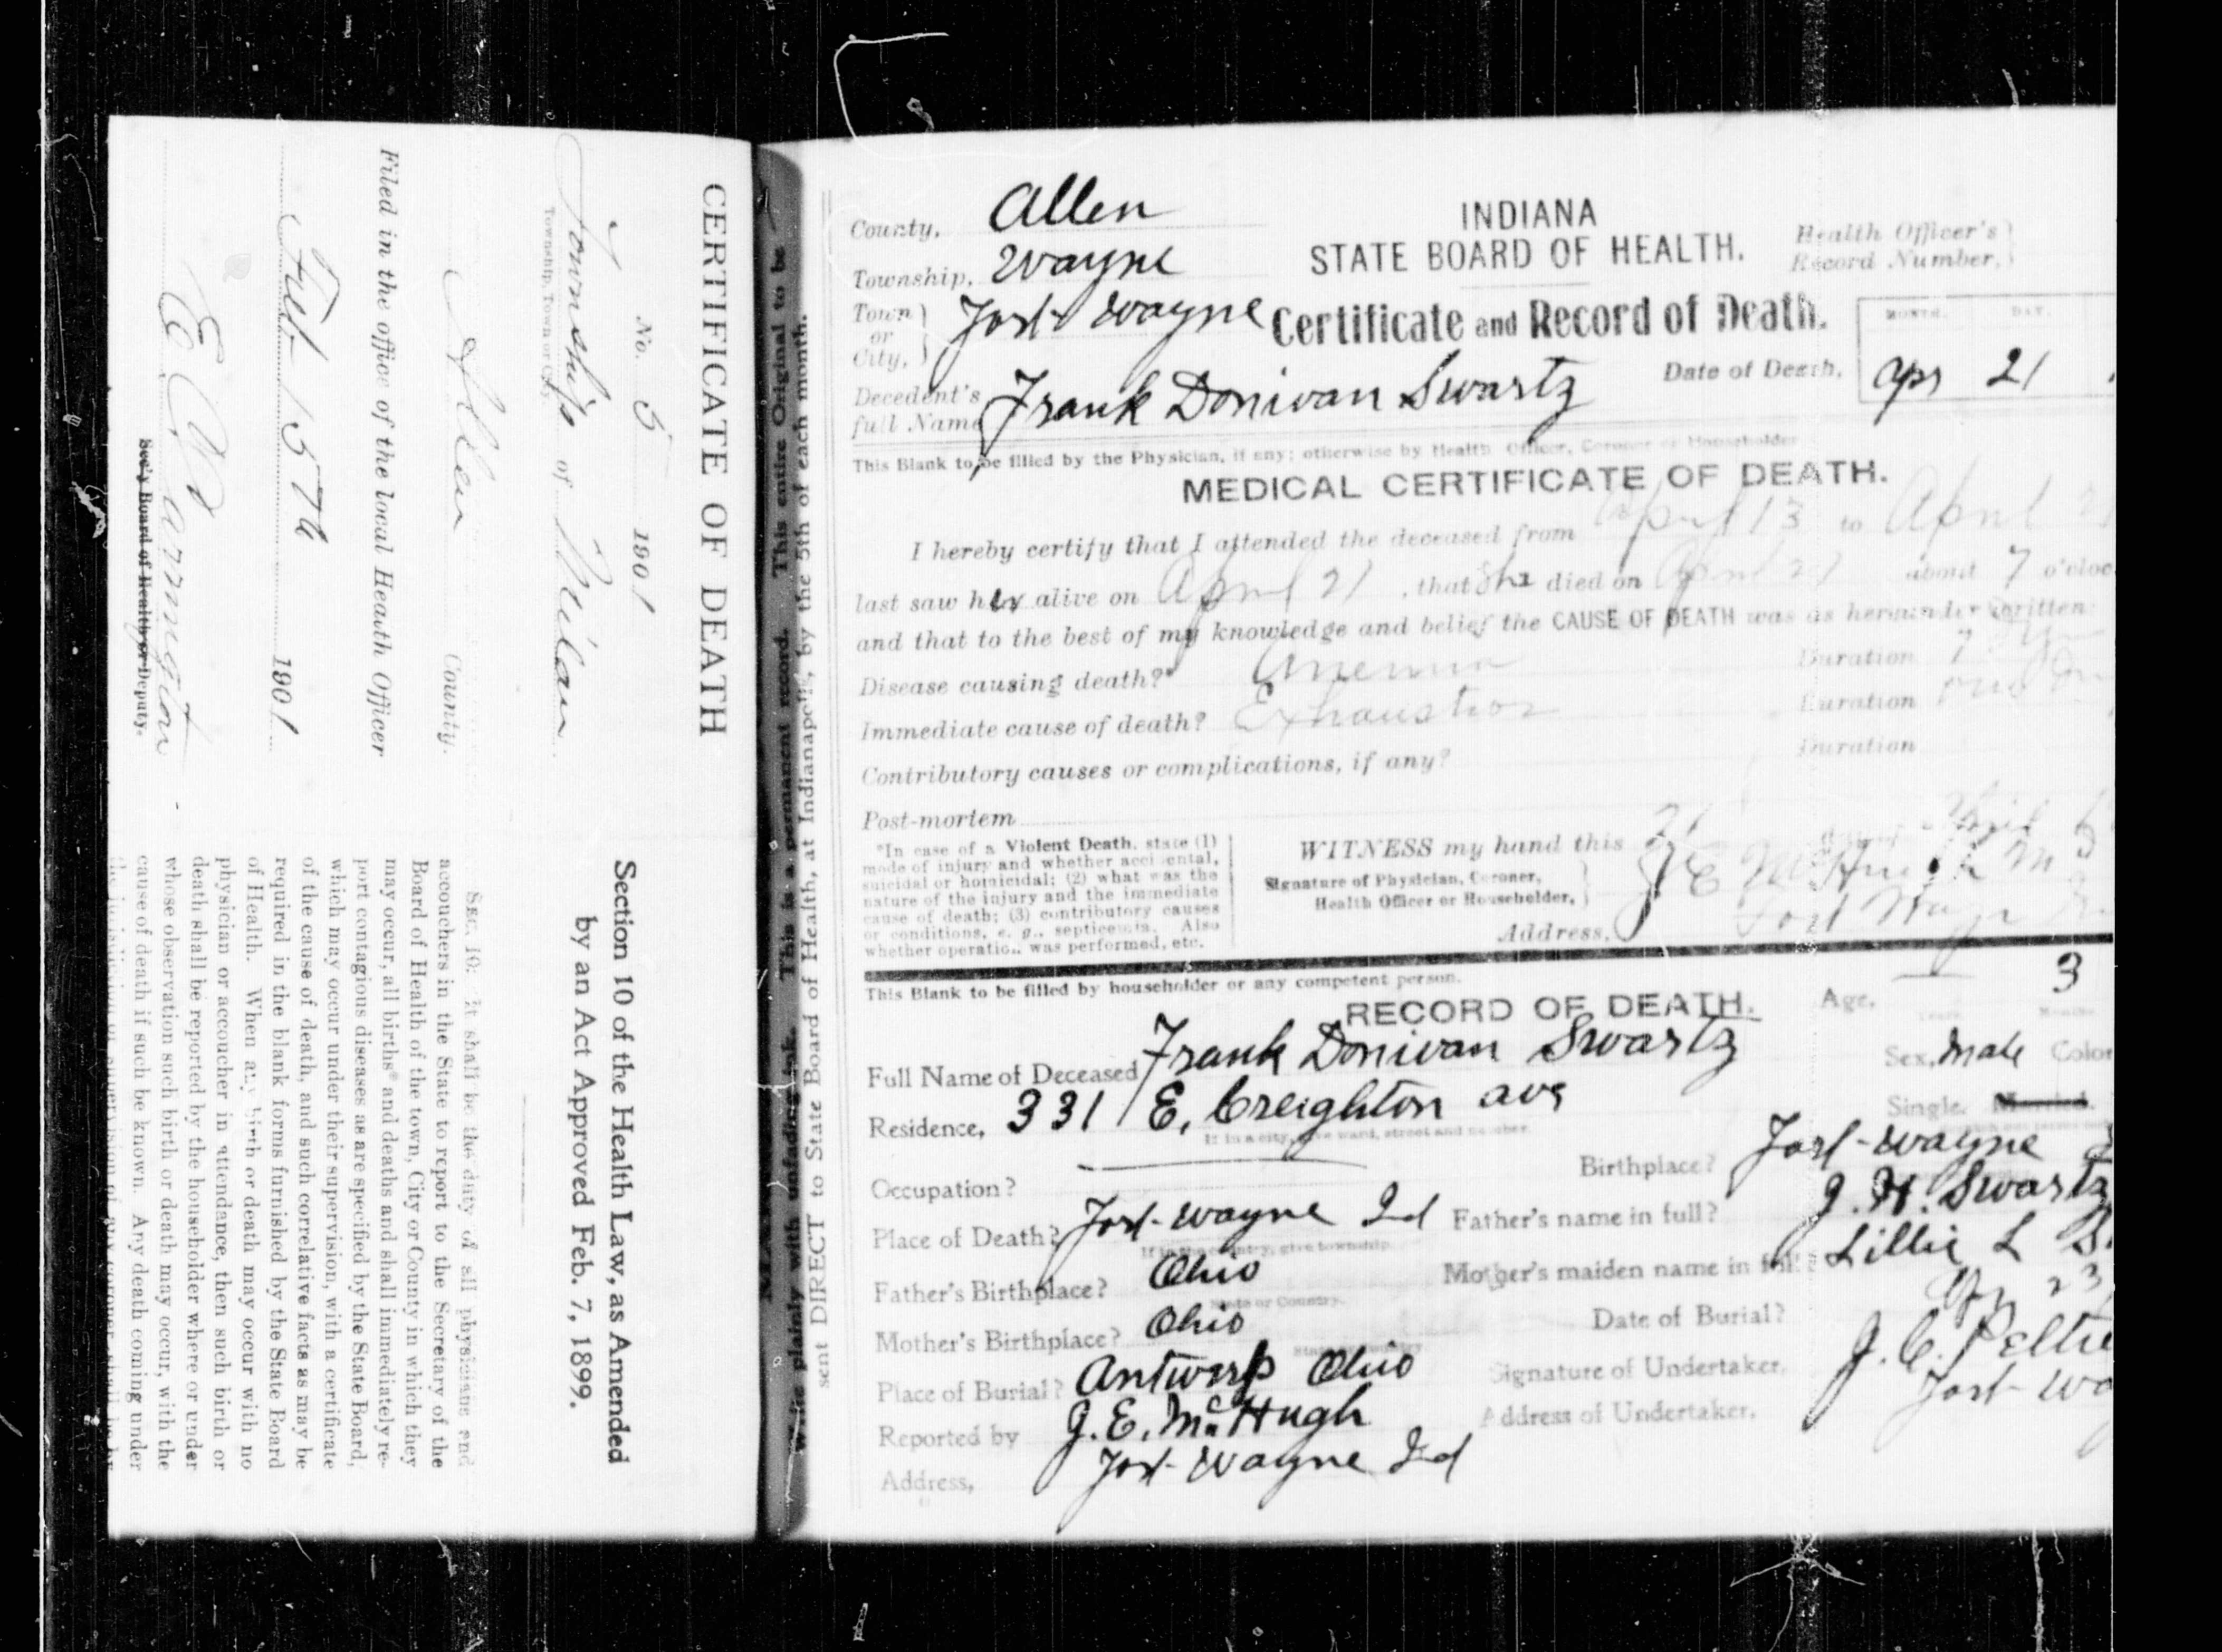 CERTIFICATE OF DEATH
No. 5 1901
Township of Milan
Township, Town or City.
Allen County.
Filed in the office of the local Health Officer
Feb 15th 1901
E W Armington
Sec'y Board of Health or Deputy.
Section 10 of the Health Law, as Amended
by an Act Approved Feb. 7, 1899.
SEC. 10: It shall be the duty of all physicians and
accouchers in the State to report to the Secretary of the
Board of Health of the town, City or County in which they
may occur, all births and deaths and shall immediately re-
port contagious diseases as are specified by the State Board,
which may occur under their supervision, with a certificate
of the cause of death, and such correlative facts as may be
required in the blank forms furnished by the State Board
of Health. When any birth or death may occur with no
physician or accoucher in attendance, then such birth or
death shall be reported by the householder where or under
whose observation such birth or death may occur, with the
cause of death if such be known. Any death coming under
plainly with unfading ink. This is a permanent record. This entire Original to be
sent DIRECT to State Board of Health, at Indianapolis, by the 5th of each month.
County, Allen
INDIANA
STATE BOARD OF HEALTH.
Health Officer's
Record Number,
Township, Wayne
Town or City, Fort Wayne
Certificate and Record of Death.
MONTH. DAY.
Decedent's full Name Frank Donivan Swartz
Date of Death, Apr 21
This Blank to be filled by the Physician, if any; otherwise by Health Officer, Coroner or Householder
MEDICAL CERTIFICATE OF DEATH.
I hereby certify that I attended the deceased from April 13 to April 21
last saw her alive on April 21, that she died on April 21 about 7 o'cloc
and that to the best of my knowledge and belief the CAUSE OF DEATH was as hereunder written:
Disease causing death?* Anemia Duration 7
Immediate cause of death? Exhaustion Duration
Contributory causes or complications, if any? Duration
Post-mortem
*In case of a Violent Death, state (1)
mode of injury and whether accidental,
suicidal or homicidal; (2) what was the
nature of the injury and the immediate
cause of death; (3) contributory causes
or conditions, e. g., septicemia. Also
whether operation was performed, etc.
WITNESS my hand this
Signature of Physician, Coroner,
Health Officer or Householder, J E McHugh M D
Address, Fort Wayne
This Blank to be filled by householder or any competent person.
RECORD OF DEATH.
Age, — 3
Years. Months.
Full Name of Deceased Frank Donivan Swartz
Sex, Male Color
Residence, 331 E. Creighton ave
If in a city, give ward, street and number.
Single. Married.
Occupation?
Birthplace? Fort-Wayne
Place of Death? Fort-Wayne Ind
If in the country, give township.
Father's name in full? J. H. Swartz
Father's Birthplace? Ohio
State or Country.
Mother's maiden name in full? Lillie L S.
Mother's Birthplace? Ohio
State or Country.
Date of Burial? Apr 23
Place of Burial? Antwerp Ohio
Signature of Undertaker, J. C. Peltie
Reported by J. E. McHugh
Address of Undertaker, Fort-Wa
Address, Fort-Wayne Ind